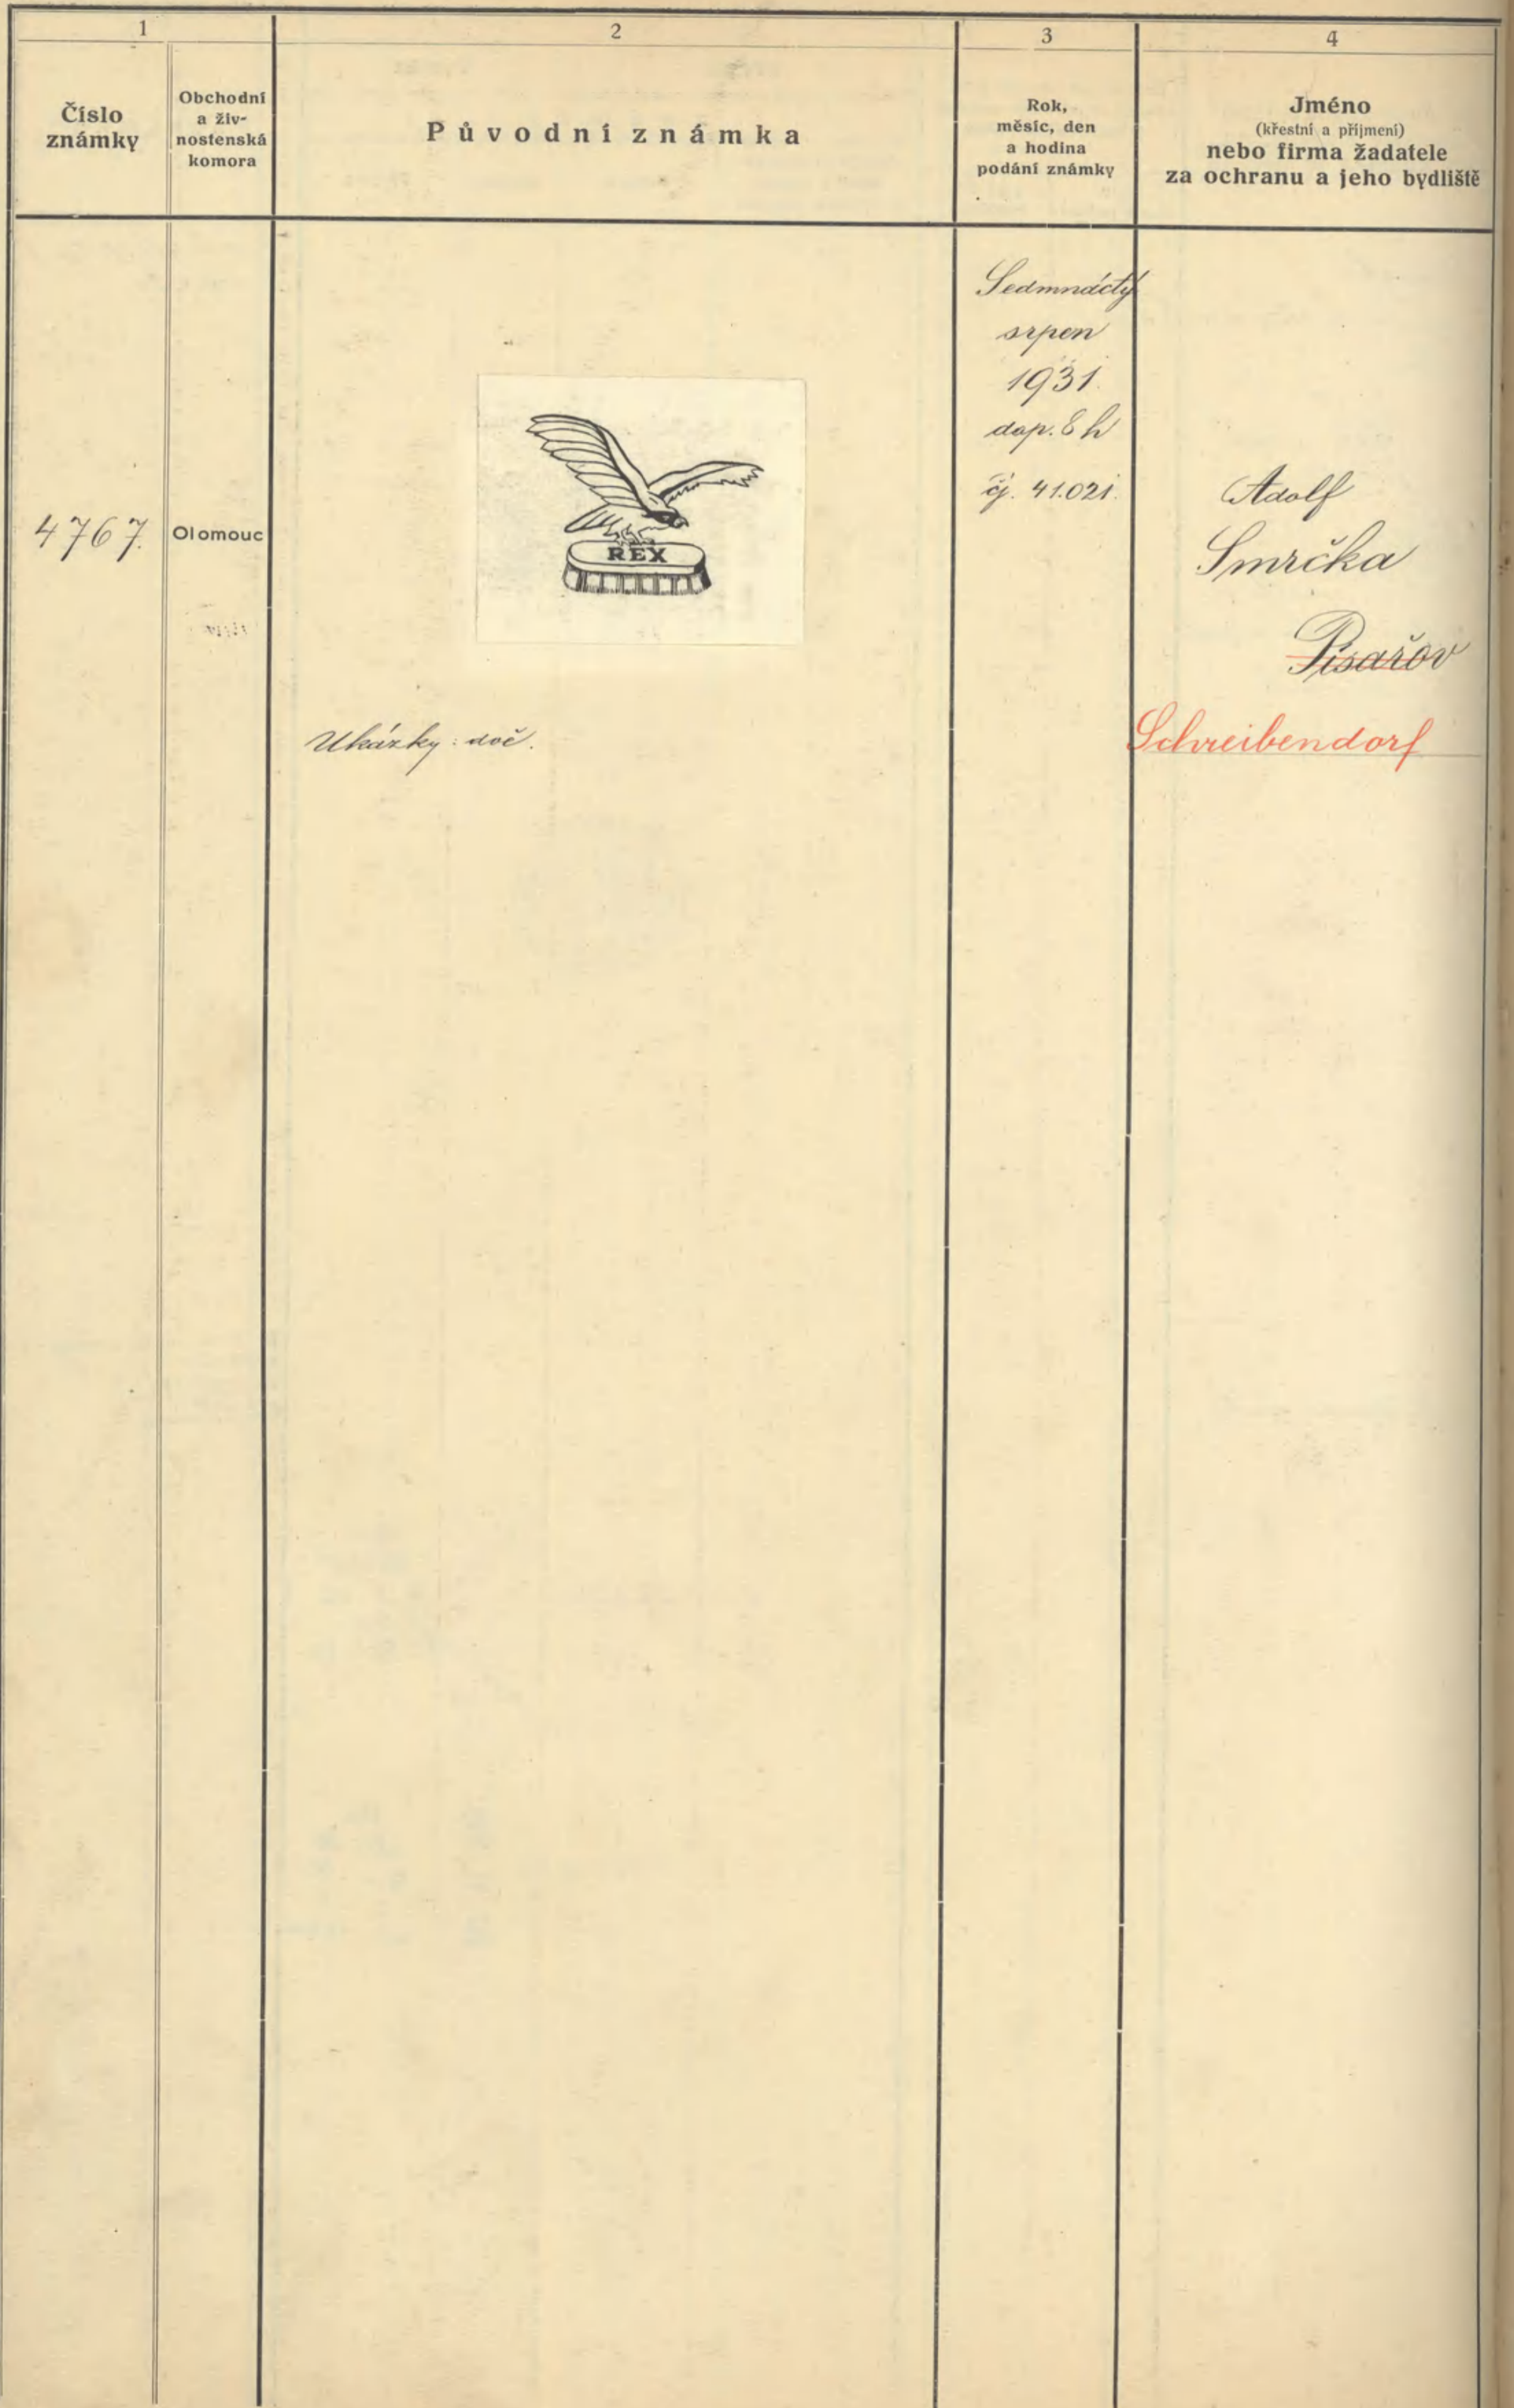 1
2
3
4
Číslo
známky
Obchodní
a živ-
nostenská
komora
Původní známka
Rok,
měsíc, den
a hodina
podání známky
Jméno
(křestní a příjmení)
nebo firma žadatele
za ochranu a jeho bydliště
4767.
Olomouc
REX
Ukázky: doč.
Sedmnáctý
srpen
1931.
dop. 8 h
čj. 41.021.
Adolf
Smrčka
Písařov
Schreibendorf